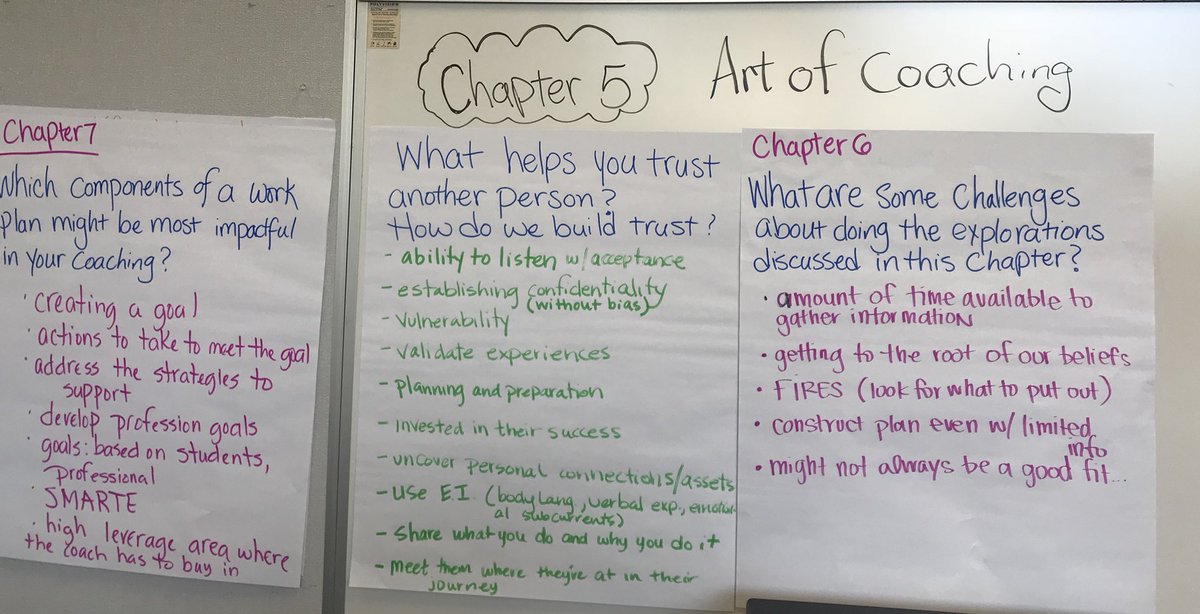 Chapter 5
Art of Coaching
Chapter 7
Which components of a work
plan might be most impactful
in your coaching?
· creating a goal
· actions to take to meet the goal
· address the strategies to
support
· develop profession goals
· goals: based on students,
professional
· SMARTE
· high leverage area where
the coach has to buy in
What helps you trust
another person?
How do we build trust?
- ability to listen w/acceptance
- establishing confidentiality
(without bias)
- Vulnerability
- Validate experiences
- Planning and preparation
- Invested in their success
- uncover personal connections/assets
- Use E.I. (body lang, verbal exp., emotion-
al subcurrents)
- Share what you do and why you do it
- meet them where they're at in their
journey
Chapter 6
What are some challenges
about doing the explorations
discussed in this chapter?
• amount of time available to
gather information
• getting to the root of our beliefs
• FIRES (look for what to put out)
• construct plan even w/ limited
info
• might not always be a good fit...